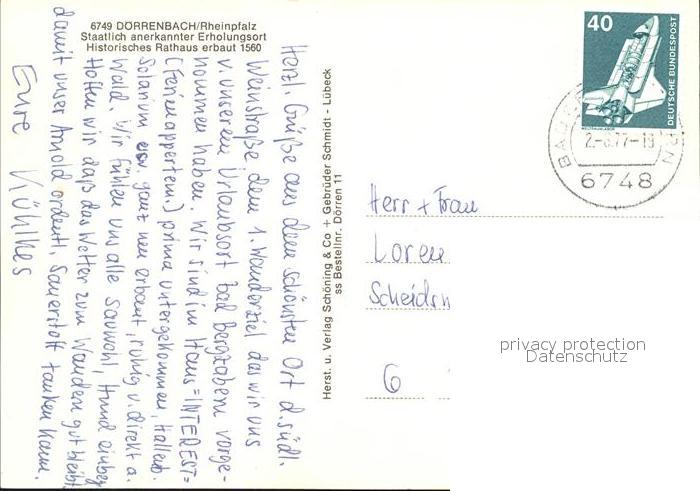 6749 DÖRRENBACH/Rheinpfalz
Staatlich anerkannter Erholungsort
Historisches Rathaus erbaut 1560
Herzl. Grüße aus dem schönsten Ort d. südl.
Weinstraße, dem 1. Wanderziel das wir uns
v. unserem Urlaubsort bad bergzabern vorge-
nommen haben. Wir sind im Haus = INTEREST =
(Ferienappartem.) prima untergekommen, Hallenb.
Solarium ganz neu erbaut, ruhig u. direkt a.
Wald. Wir fühlen uns alle sauwohl, Hund einbeg
Hoffen wir daß das Wetter zum Wandern gut bleibt
damit unser Arnold ordentl. Sauerstoff tanken kann.
Eure Kühlkes
Herst. u. Verlag Schöning & Co + Gebrüder Schmidt - Lübeck
ss Bestellnr. Dörren 11
40
DEUTSCHE BUNDESPOST
WELTRAUMLABOR
BAD
2.-8.77-19
6748
Herr + Frau
Loren
Scheidn
6
privacy protection
Datenschutz